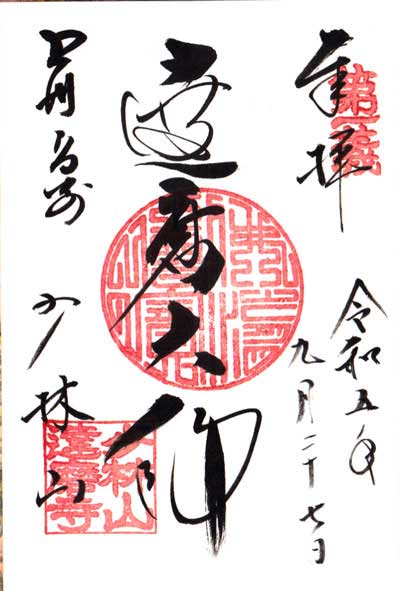 奉拝
令和五年
九月二十七日
達磨大師
上州高崎
少林山
少林山
達磨寺